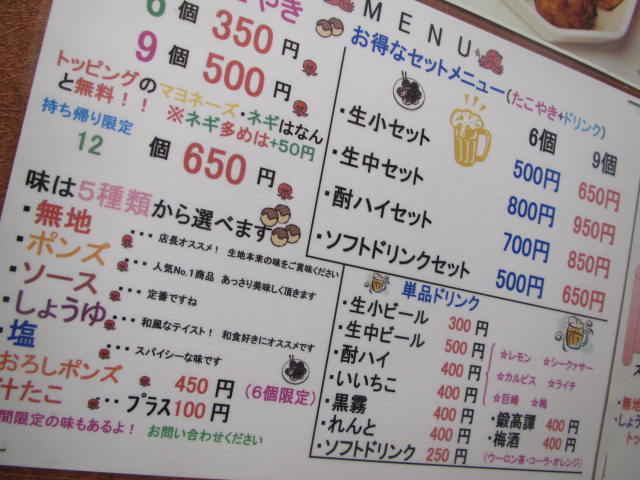 MENU
こやき
6個 350円
9個 500円
トッピングのマヨネーズ・ネギはなん
と無料！！ ※ネギ多めは+50円
持ち帰り限定
12個 650円
味は5種類から選べます
・無地 ・・・店長オススメ！ 生地本来の味をご賞味ください
・ポンズ ・・・人気No.1商品 あっさり美味しく頂きます
・ソース ・・・定番ですね
・しょうゆ ・・・和風なテイスト！ 和食好きにオススメです
・塩 ・・・スパイシーな味です
おろしポンズ 450円（6個限定）
汁たこ ‥プラス100円
間限定の味もあるよ！ お問い合わせください
お得なセットメニュー(たこやき+ドリンク)
6個 9個
・生小セット 500円 650円
・生中セット 800円 950円
・酎ハイセット 700円 850円
・ソフトドリンクセット 500円 650円
単品ドリンク
・生小ビール 300円
・生中ビール 500円
・酎ハイ 400円
☆レモン ☆シークァサー
☆カルピス ☆ライチ
☆巨峰 ☆梅
・いいちこ 400円
・黒霧 400円
・れんと 400円
・ソフトドリンク 250円
・鍛高譚 400円
・梅酒 400円
(ウーロン茶・コーラ・オレンジ)
・無地
・しょう
トッ